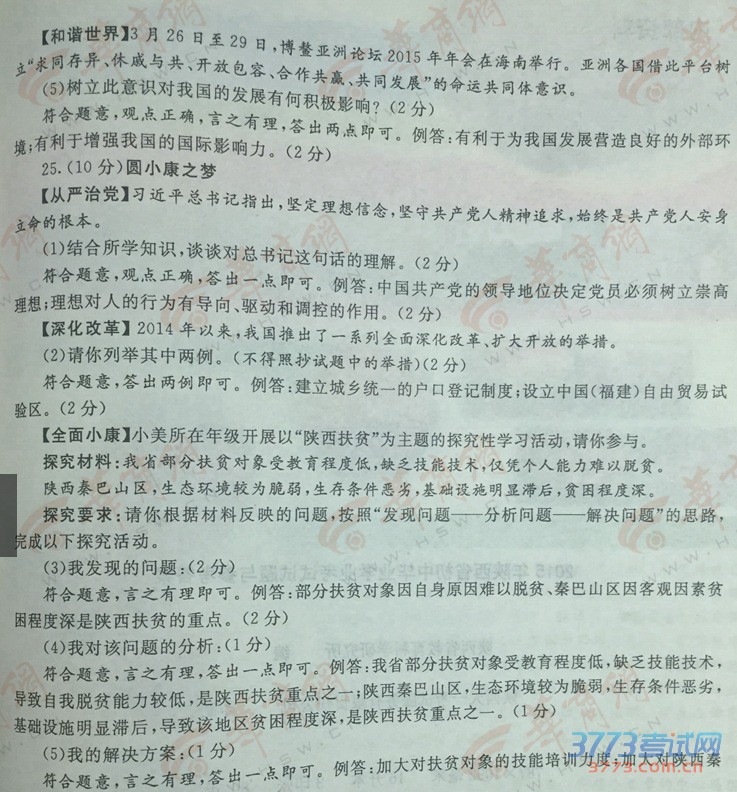 【和谐世界】3月26日至29日,博鳌亚洲论坛2015年年会在海南举行。亚洲各国借此平台树
立“求同存异、休戚与共、开放包容、合作共赢、共同发展”的命运共同体意识。
(5)树立此意识对我国的发展有何积极影响?(2分)
符合题意,观点正确,言之有理,答出两点即可。例答:有利于为我国发展营造良好的外部环
境;有利于增强我国的国际影响力。(2分)
25.(10分)圆小康之梦
【从严治党】习近平总书记指出,坚定理想信念,坚守共产党人精神追求,始终是共产党人安身
立命的根本。
(1)结合所学知识,谈谈对总书记这句话的理解。(2分)
符合题意,观点正确,答出一点即可。例答:中国共产党的领导地位决定党员必须树立崇高
理想;理想对人的行为有导向、驱动和调控的作用。(2分)
【深化改革】2014年以来,我国推出了一系列全面深化改革、扩大开放的举措。
(2)请你列举其中两例。(不得照抄试题中的举措)(2分)
符合题意,答出两例即可。例答:建立城乡统一的户口登记制度;设立中国(福建)自由贸易试
验区。(2分)
【全面小康】小美所在年级开展以“陕西扶贫”为主题的探究性学习活动,请你参与。
探究材料:我省部分扶贫对象受教育程度低,缺乏技能技术,仅凭个人能力难以脱贫。
陕西秦巴山区,生态环境较为脆弱,生存条件恶劣,基础设施明显滞后,贫困程度深。
探究要求:请你根据材料反映的问题,按照“发现问题——分析问题——解决问题”的思路,
完成以下探究活动。
(3)我发现的问题:(2分)
符合题意,言之有理即可。例答:部分扶贫对象因自身原因难以脱贫、秦巴山区因客观因素贫
困程度深是陕西扶贫的重点。(2分)
(4)我对该问题的分析:(1分)
符合题意,言之有理,答出一点即可。例答:我省部分扶贫对象受教育程度低,缺乏技能技术,
导致自我脱贫能力较低,是陕西扶贫重点之一;陕西秦巴山区,生态环境较为脆弱,生存条件恶劣,
基础设施明显滞后,导致该地区贫困程度深,是陕西扶贫重点之一。(1分)
(5)我的解决方案:(1分)
符合题意,言之有理,答出一点即可。例答:加大对扶贫对象的技能培训力度;加大对陕西秦
3773考试网
www.3773.com.cn
华商网